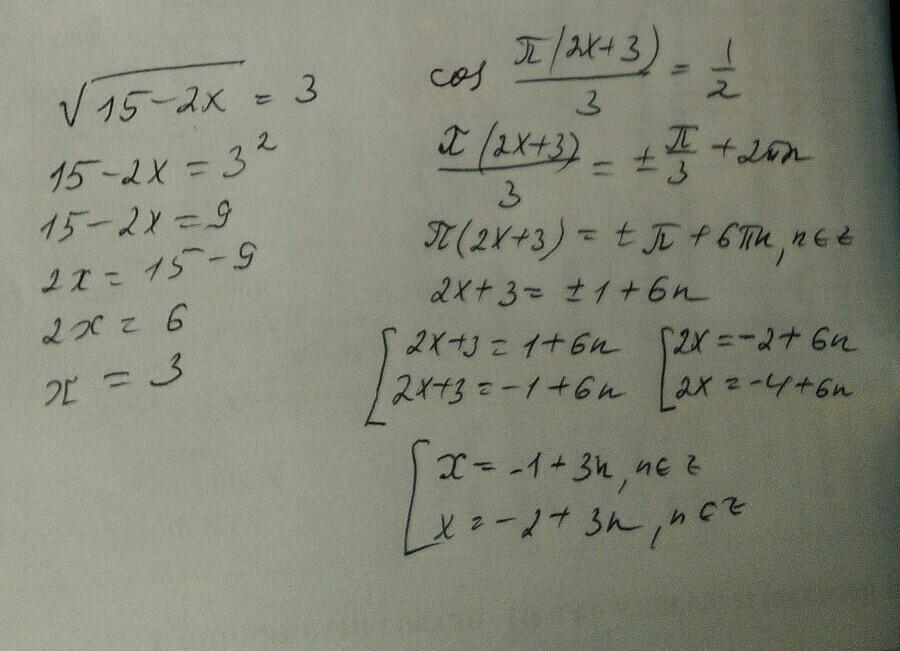 √15-2x = 3
15-2x = 3²
15-2x = 9
2x = 15-9
2x = 6
x = 3
cos π(2x+3)/3 = 1/2
π(2x+3)/3 = ± π/3 + 2πn
π(2x+3) = ± π + 6πn, n∈z
2x+3 = ±1+6n
[2x+3 = 1+6n [2x = -2+6n
2x+3 = -1+6n 2x = -4+6n
[x = -1+3n, n∈z
x = -2+3n, n∈z